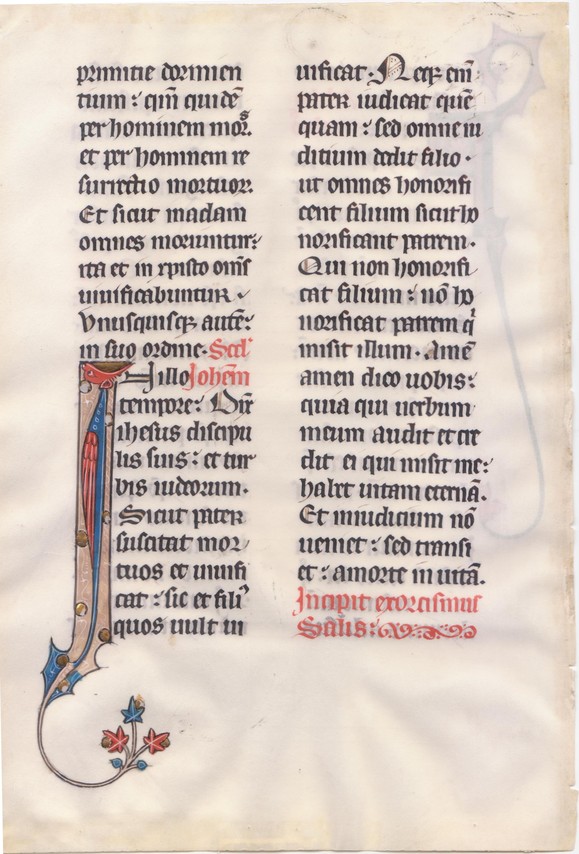 primitie dormien
tium : qm̄ quidē
per hominem mors.
et per hominem re
surrectio mortuor.
Et sicut in adam
omnes moriuntur :
ita et in xpisto om̄s
uiuificabuntur .
Vnusquisqꝫ autē :
in suo ordine . Scd'
In illo Johēm
tempore : Dix̄
ihesus discipu
lis suis : et tur
bis iudeorum .
Sicut pater
suscitat mor
tuos et uiuifi
cat : sic et fili⁹
quos uult ui
uificat . Neqꝫ em̄
pater iudicat quē
quam : sed omne iu
ditium dedit filio .
ut omnes honorifi
cent filium sicut ho
norificant patrem .
Qui non honorifi
cat filium : nō ho
norificat patrem q̄
misit illum . Amē
amen dico uobis :
quia qui uerbum
meum audit et cre
dit ei qui misit me :
habet uitam eternā .
Et in iudicium nō
ueniet : sed transi
et : a morte in uitā .
Incipit exorcismus
Salis :